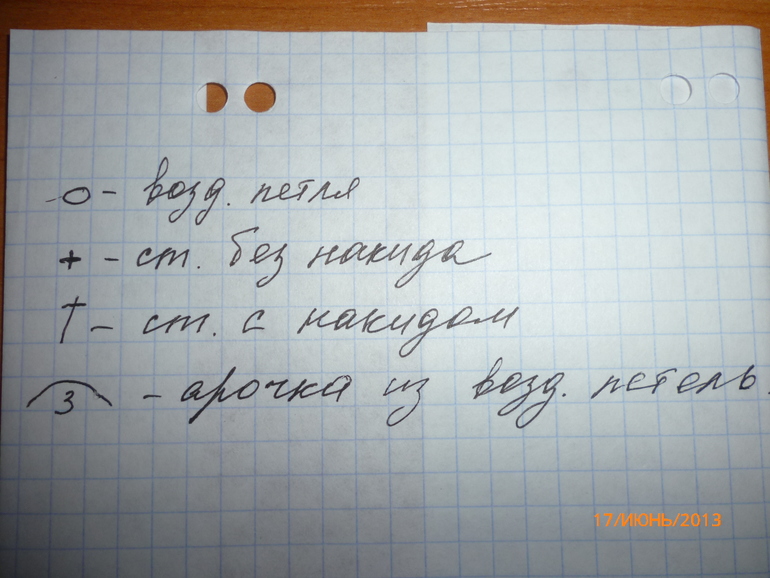 о - возд. петля
+ - ст. без накида
† - ст. с накидом
3 - арочка из возд. петель.
17/ИЮНЬ/2013